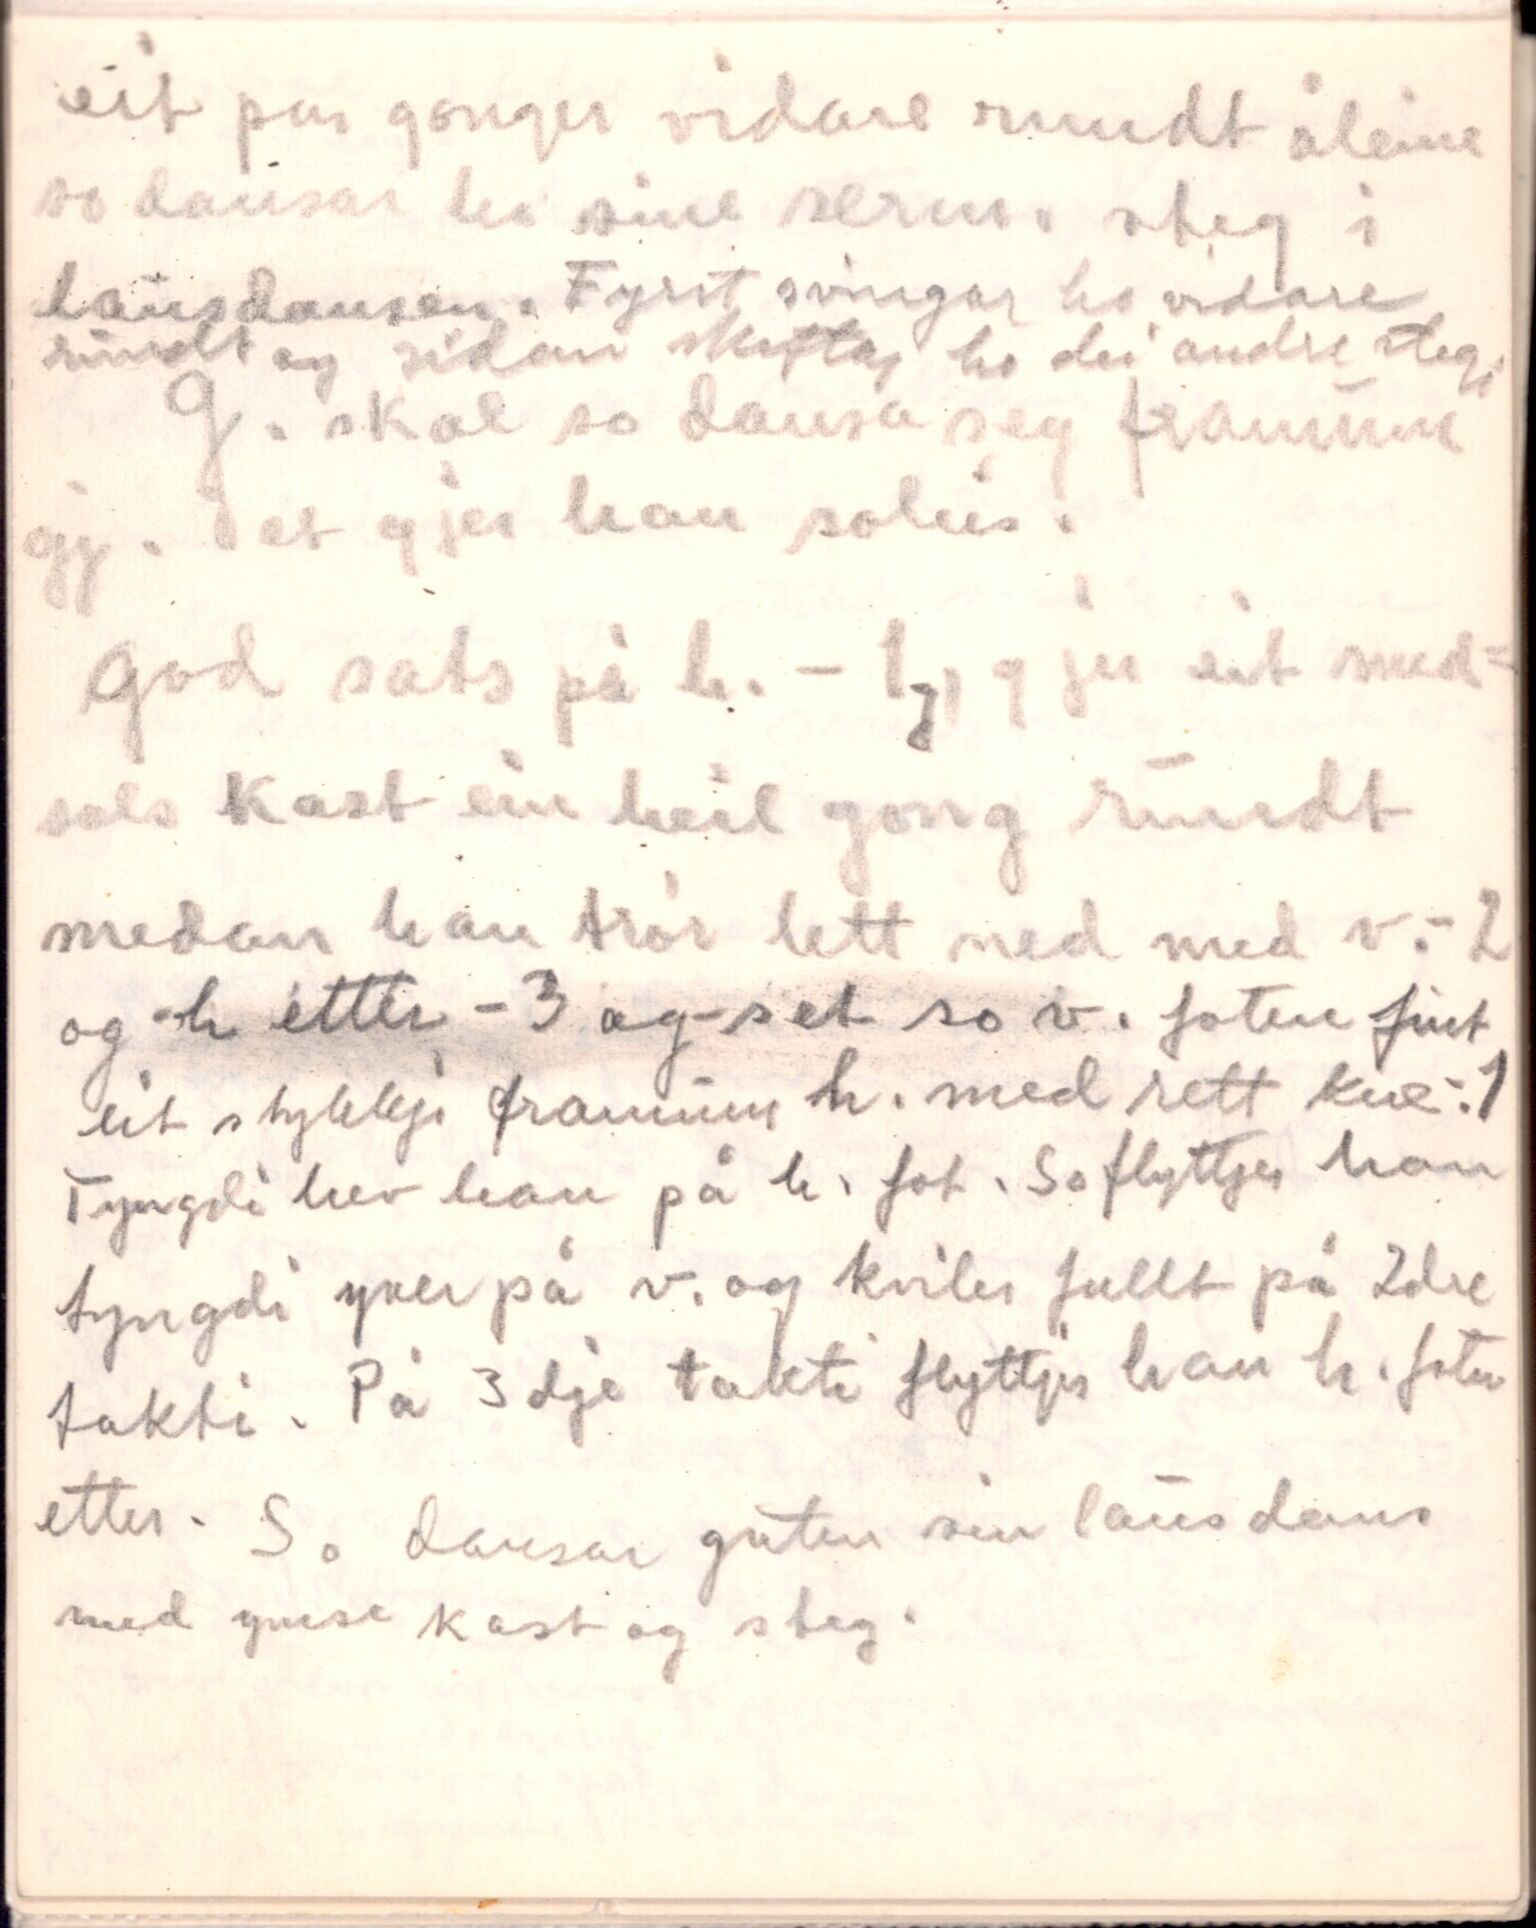 eit par gonger vidare rundt åleine
so dansar ho sine serm. steg i
lausdansen. Fyrst svingar ho vidare
rundt og sidan skiftar ho dei andre steg.
G. skal so dansa seg framum
gj. Det gjer han soleis:
God sats på h. - 1 gjer eit med=
sols kast ein heil gong rundt
medan han trør lett ned med v. - 2
og -h etter - 3 og set so v. foten fint
eit stykkje framum h. med rett kne: 1
Tyngdi hev han på h. fot. So flyttjer han
tyngdi yver på v. og kviler fullt på 2dre
takti. På 3dje takti flyttjer han h. foten
etter. So dansar guten sin lausdans
med ymse kast og steg.